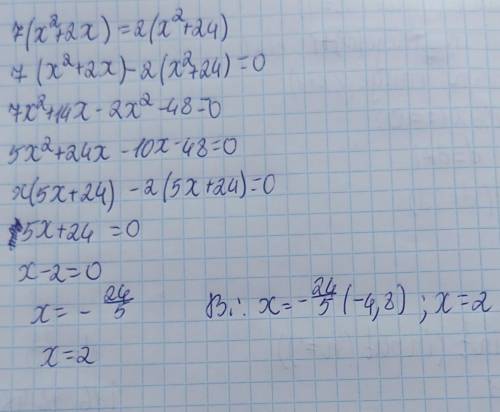 7(x²+2x)=2(x²+24)
7(x²+2x)-2(x²+24)=0
7x²+14x-2x²-48=0
5x²+24x-10x-48=0
x(5x+24)-2(5x+24)=0
5x+24=0
x-2=0
x=-24/5
Ві: x=-24/5(-4,8); x=2
x=2